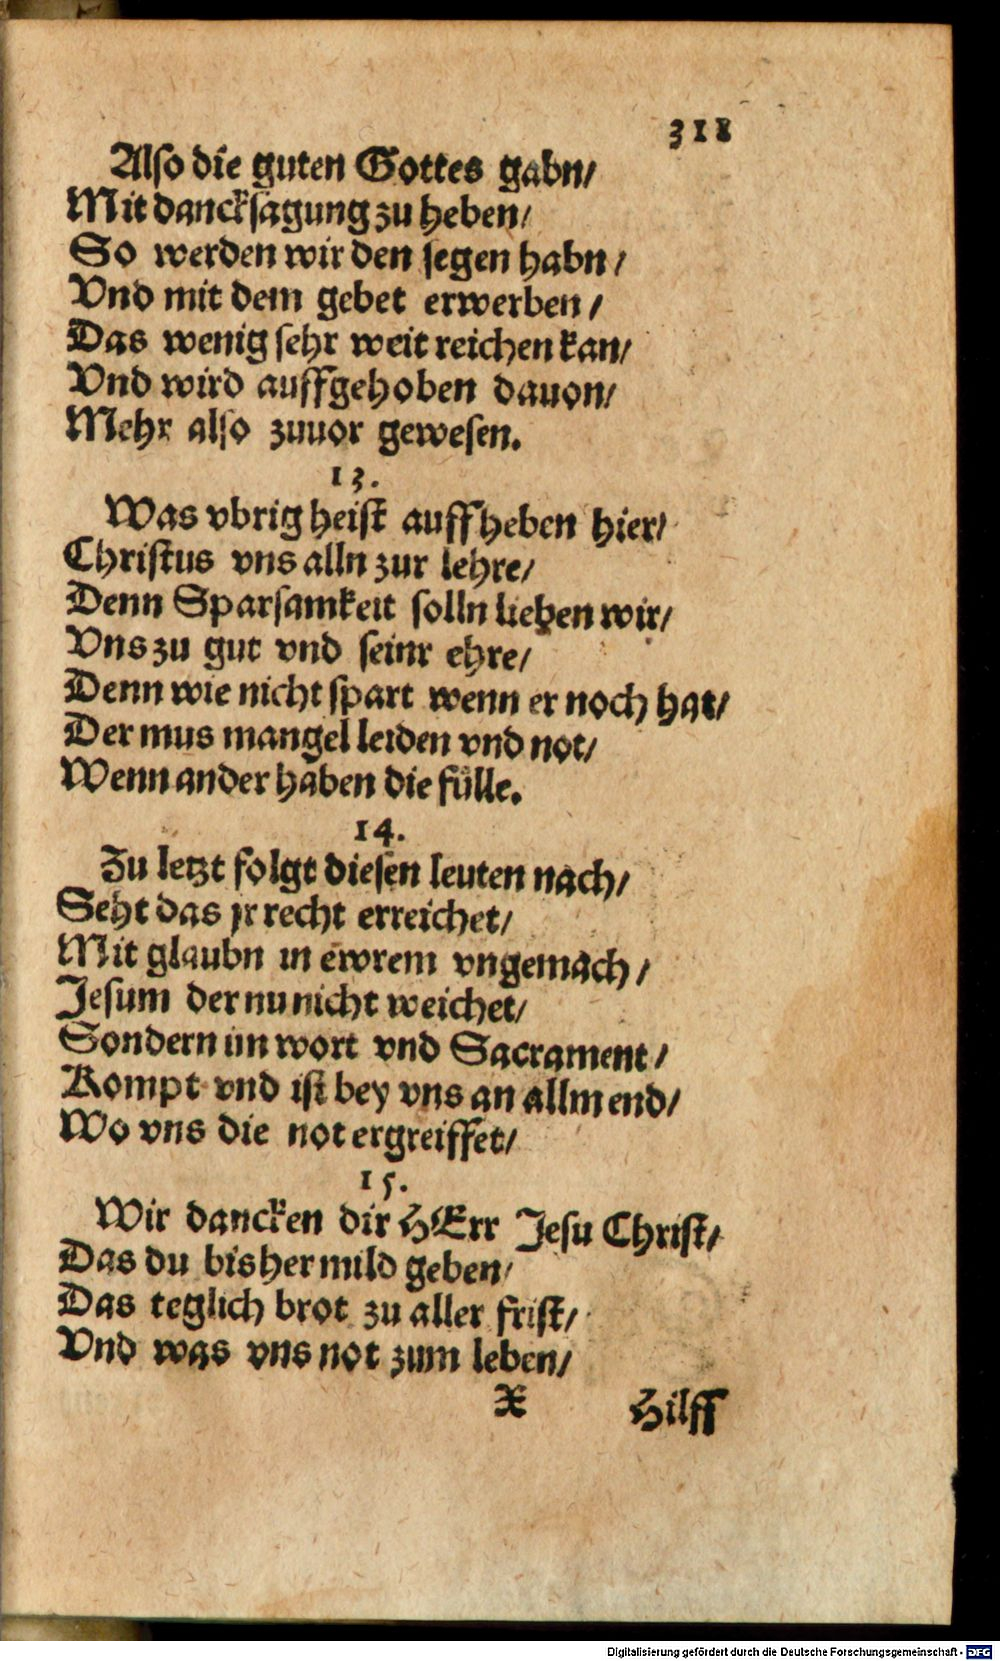 318
Also die guten Gottes gabn/
Mit dancksagung zu heben/
So werden wir den segen habn/
Vnd mit dem gebet erwerben/
Das wenig sehr weit reichen kan/
Vnd wird auffgehoben dauon/
Mehr also zuuor gewesen.
13.
Was vbrig heist auffheben hier/
Christus vns alln zur lehre/
Denn Sparsamkeit solln lieben wir/
Vns zu gut vnd seinr ehre/
Denn wie nicht spart wenn er noch hat/
Der mus mangel leiden vnd not/
Wenn ander haben die fülle.
14.
Zu letzt folgt diesen leuten nach/
Seht das jr recht erreichet/
Mit glaubn in ewrem vngemach/
Jesum der nu nicht weichet/
Sondern im wort vnd Sacrament/
Kompt vnd ist bey vns an allm end/
Wo vns die not ergreiffet/
15.
Wir dancken dir HErr Jesu Christ/
Das du bisher mild geben/
Das teglich brot zu aller frist/
Vnd was vns not zum leben/
X Hilff
Digitalisierung gefördert durch die Deutsche Forschungsgemeinschaft - DFG